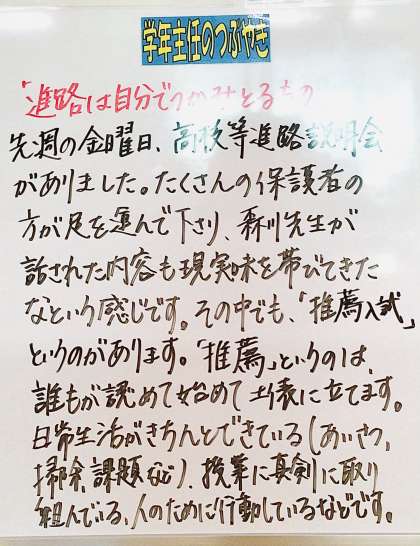 学年主任のつぶやき
「進路は自分でつかみとるもの
先週の金曜日、高校等進路説明会
がありました。たくさんの保護者の
方が足を運んで下さり、森川先生が
話された内容も現実味を帯びてきた
なという感じです。その中でも、「推薦入試」
というのがあります。「推薦」というのは、
誰もが認めて始めて土俵に立てます。
日常生活がきちんとできている(あいさつ、
掃除、課題など)、授業に真剣に取り
組んでいる、人のために行動しているなどです。